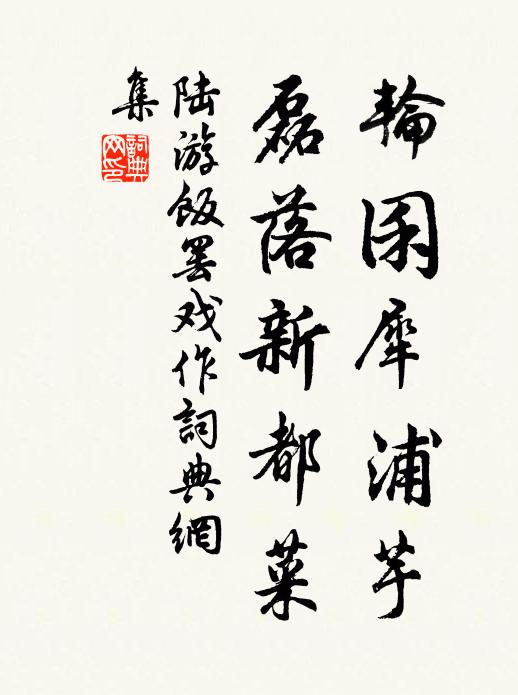 輪囷犀浦芋
磊落新都菜
陆游飯罢戏作詞典網
集
詞典網印